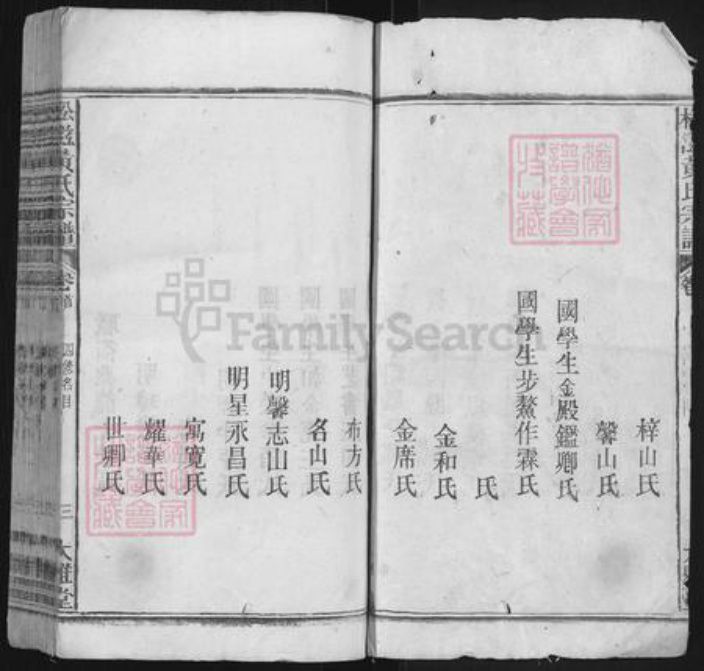 梓山氏
馨山氏
國學生金殿鑑卿氏
國學生步鰲作霖氏
氏
金和氏
金席氏
布方氏
名山氏
明馨志山氏
明星永昌氏
寓寬氏
耀華氏
世卿氏
黃氏宗譜
三
大雅堂
FamilySearch